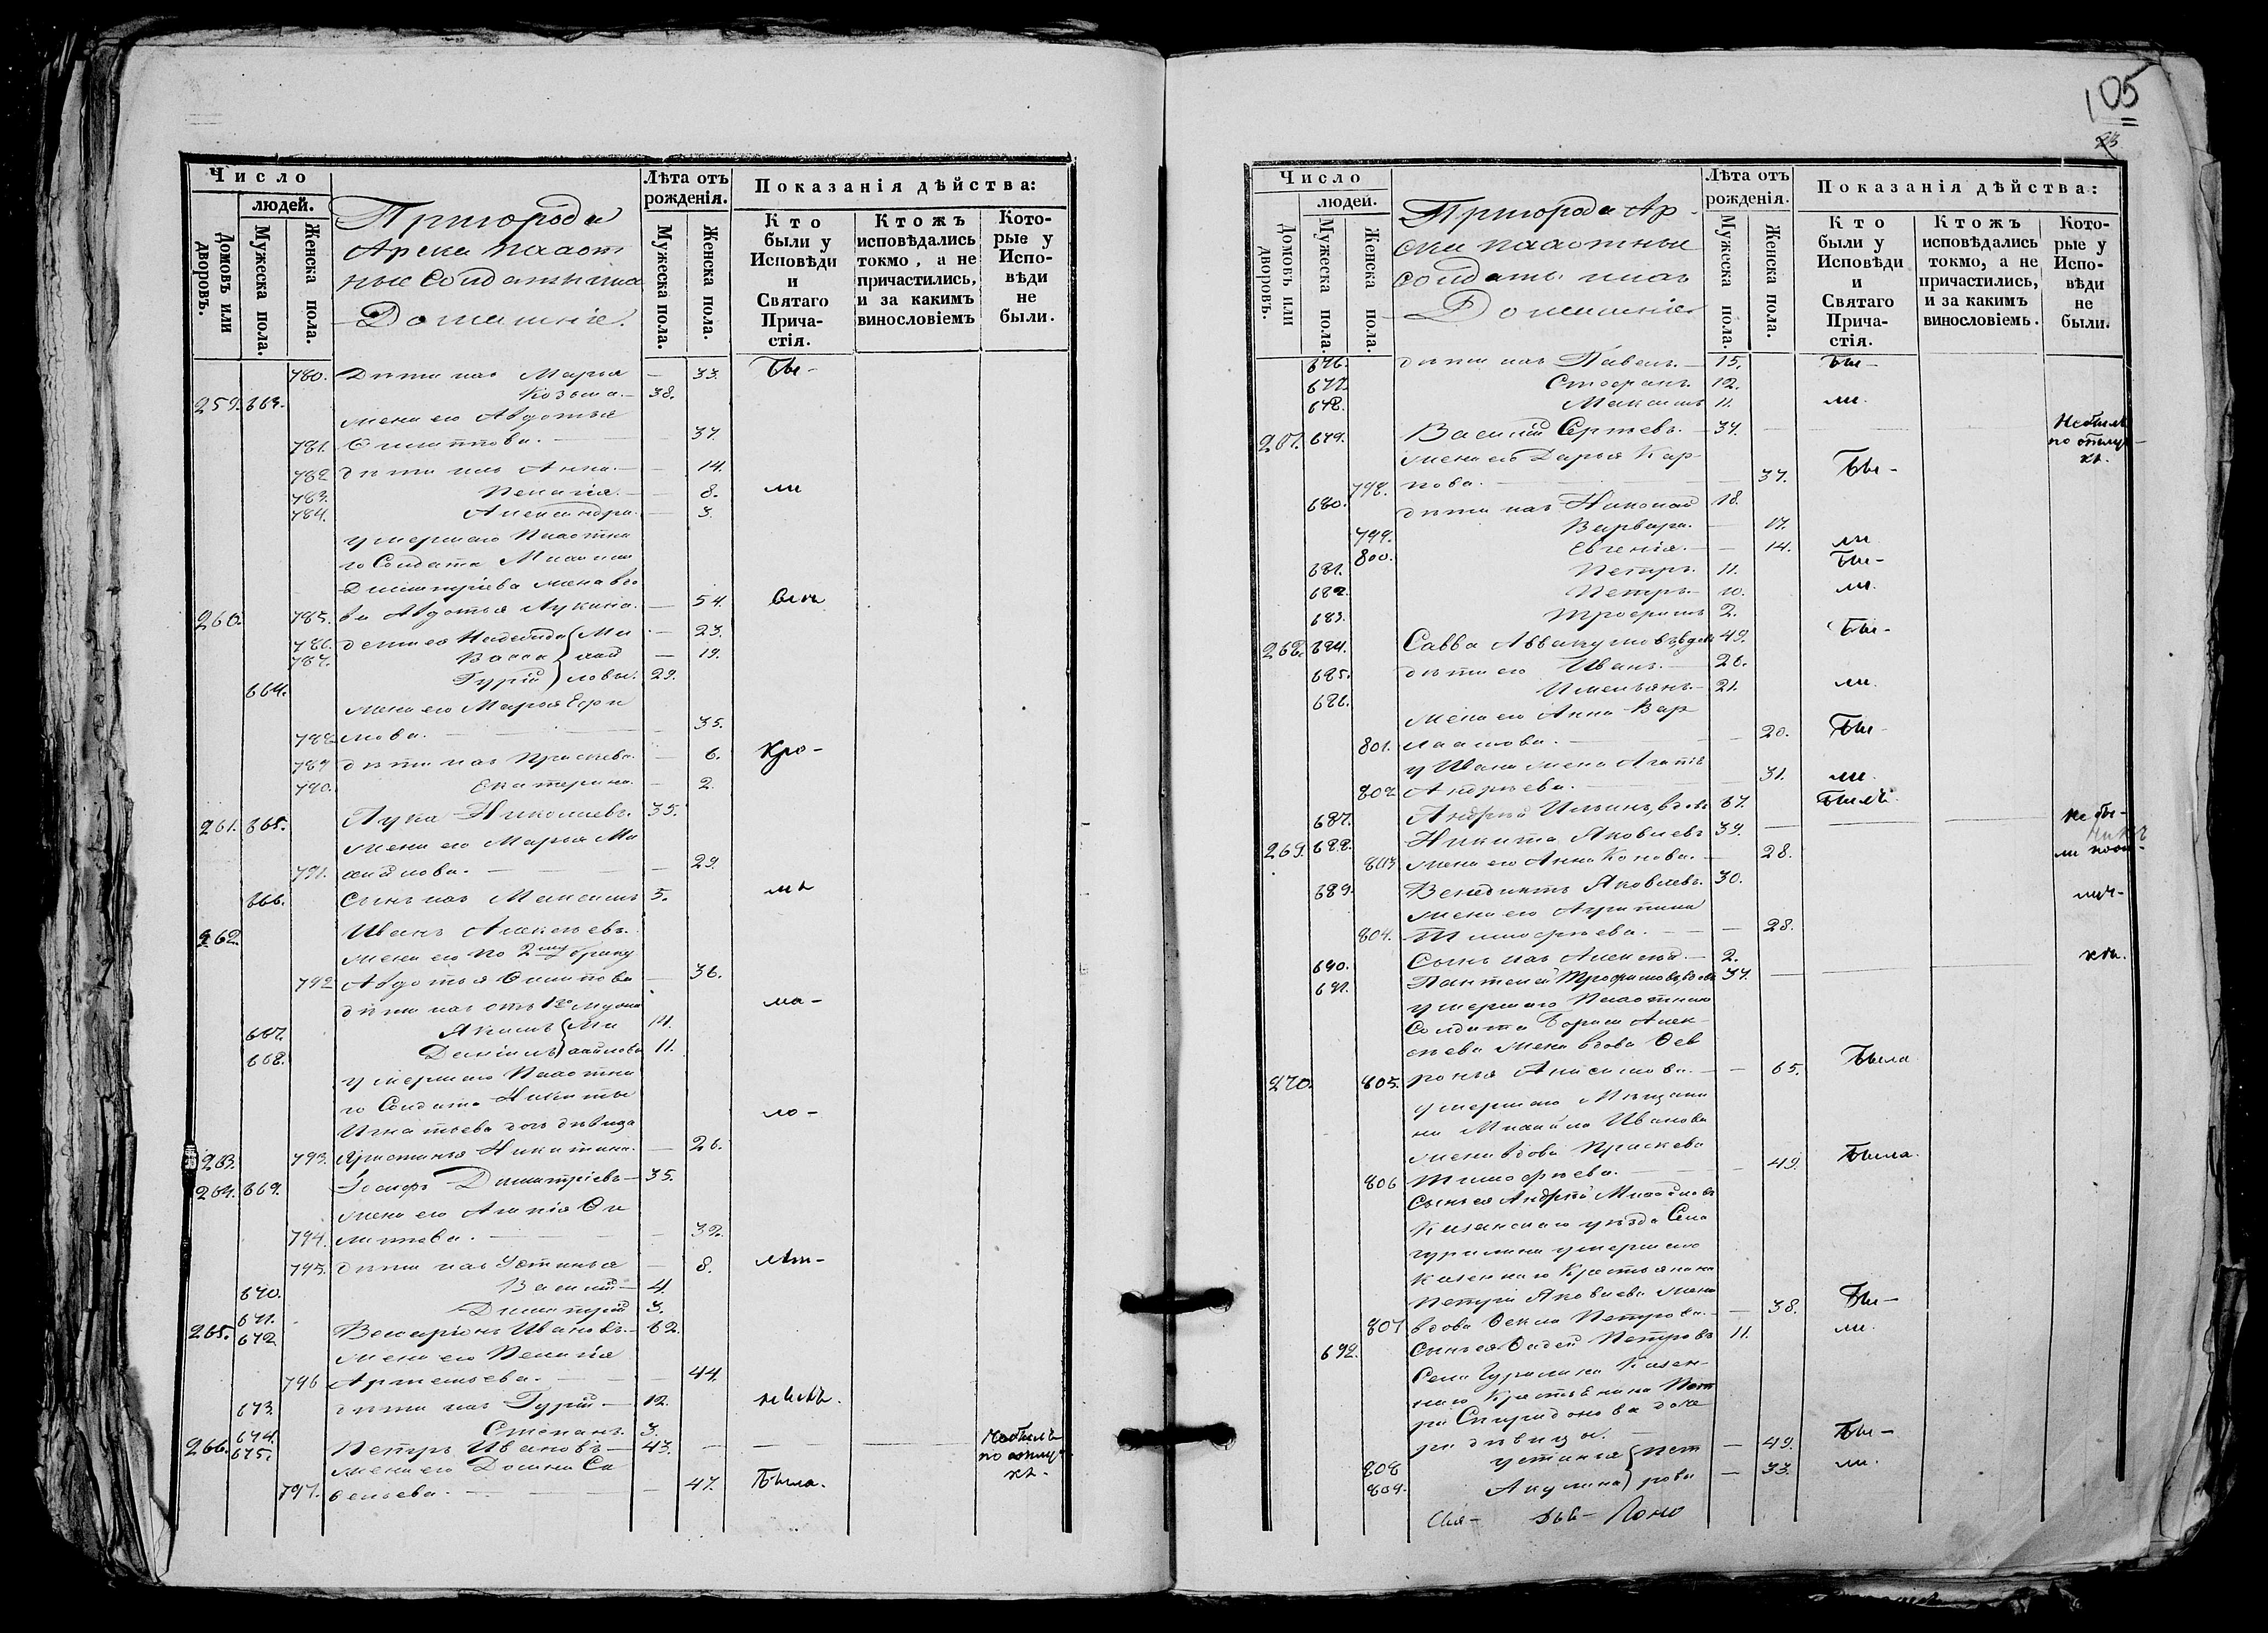 Число
людей.
Домовъ или дворовъ.
Мужеска пола.
Женска пола.
Пригорода
Арска пахот
ные Солдаты и ихъ
Домашніе.
Лѣта отъ рожденія.
Мужеска пола.
Женска пола.
Показанія дѣйства:
Кто были у Исповѣди и Святаго Причастія.
Ктожъ исповѣдались токмо, а не причастились, и за какимъ винословіемъ
Которые у Исповѣди не были.
780. Дѣти ихъ Марья — 33. Бы-
259. 663. Козьма. — 38.
жена его Авдотья
781. Филиппова. — 37.
782 дѣти ихъ Анна. — 14.
783. Пелагія. — 8. ли
784. Александра. — 3.
умершаго Пахотна
го Солдата Михаила
Димитріева жена вдо
260. 785. ва Авдотья Лукина. — 54. Всѣ
786. дети ея Надежда Ми — 23.
787. Васса хай — 19.
664. Гурій ловы. 29.
жена его Марья Ефи
788 мова. — 35.
789 дѣти ихъ Праскева. — 6. Кро-
790. Екатерина. — 2.
261. 665. Лука Николаевъ. 35.
жена его Марья Ми
791. хайлова. — 29.
666. Сынъ ихъ Максимъ 5. мѣ
262. Иванъ Алексѣевъ.
жена его по 2му браку
792 Авдотья Филипова — 36.
дѣти ихъ отъ 1го мужа ма-
667. Якимъ Ми 14.
668. Даніилъ хайловы 11.
умершаго Пахотна
го Солдата Никиты ло-
Игнатьева дочь дѣвица
263. 793. Христинья Никитина. — 26.
264. 669. Іосифъ Димитріевъ — 35.
жена его Агапія Фи
794. липпева. — 32.
795. дѣти ихъ Устинья — 8. лѣт-
670. Василій — 4.
671. Димитрій 3.
265. 672 Виссаріонъ Ивановъ. — 62.
жена его Пелагія
796 Артемьева. — 44.
673. дѣти ихъ Гурій — 12. нихъ.
674. Степанъ. 3.
266. 675. Петръ Ивановъ — 43. — — Небылъ
по отлуч-
жена его Домна Са кѣ.
797. вельева. — 47. Была.
105
23
Число
людей.
Домовъ или дворовъ.
Мужеска пола.
Женска пола.
Пригорода Ар-
ска пахотные
солдаты и ихъ
Домашніе
Лѣта отъ рожденія.
Мужеска пола.
Женска пола.
Показанія дѣйства:
Кто были у Исповѣди и Святаго Причастія.
Ктожъ исповѣдались токмо, а не причастились, и за какимъ винословіемъ.
Которые у Исповѣди не были.
676. дѣти ихъ Павелъ. — 15. Бы-
677. Стефанъ. 12.
678. Максимъ 11. ли.
267. 679. Василій Сергѣевъ. — 37. — Небылъ
по отлуч-
жена его Дарья Кар- кѣ.
798. пова. — 37. Бы-
680. дѣти ихъ Николай 18.
799. Варвара. — 17.
800. Евгенія. — 14. ли
681. Петръ. 11. Бы-
682. Петръ. — 10. ли.
683. Трофимъ 2.
268. 684. Савва Аввакумовъ вдов 49. Бы-
685. дѣти его Иванъ. — 26.
686. Имельянъ. — 21. ли.
жена его Анна Вар
801. лаамова. — 20. Бы-
у Ивана жена Агапія
802 Андреева. — 31. ли.
687. Андрей Ильинъ, вдовъ 67. Былъ.
269. 688. Никита Яковлевъ 39. — не бы-
803 жена его Анна Конова. — 28. ли по от-
689. Венедиктъ Яковлевъ. 30. луч-
жена его Агрипина
804. Тимофѣева. — 28.
690. Сынъ ихъ Алексѣй — 2. кѣ.
691. Пантелей Трофимовъ, вдовъ 37. —
умершаго Пахотнаго
Солдата Бориса Алек-
сѣева жена вдова Фев
270. 805. ронья Анисимова. — 65. Была
умершаго Мѣщани
на Михайла Иванова
жена вдова Праскева
806 Тимофѣева. — 49. Была.
Сынъ ея Андрей Михайловъ
Казанскаго уѣзда Села
Чурилина умершаго
Казеннаго Крестьянина
Петра Яковлева жена
807 вдова Фекла Петрова. — 38. Бы-
692. Сынъ ея Фадей Петровъ 11. ли.
Села Чурилина Казен-
наго Крестьянина Пет
ра Спиридонова доче
ри дѣвицы.
808 Устинья Пет — 49. Бы-
809. Акулина рова — 33. ли.